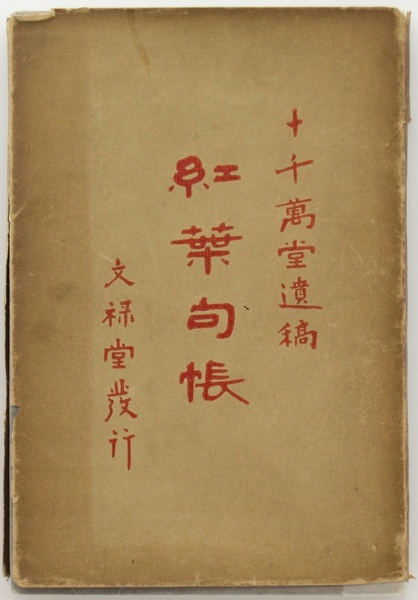 十千萬堂遺稿
紅葉句帳
文禄堂發行